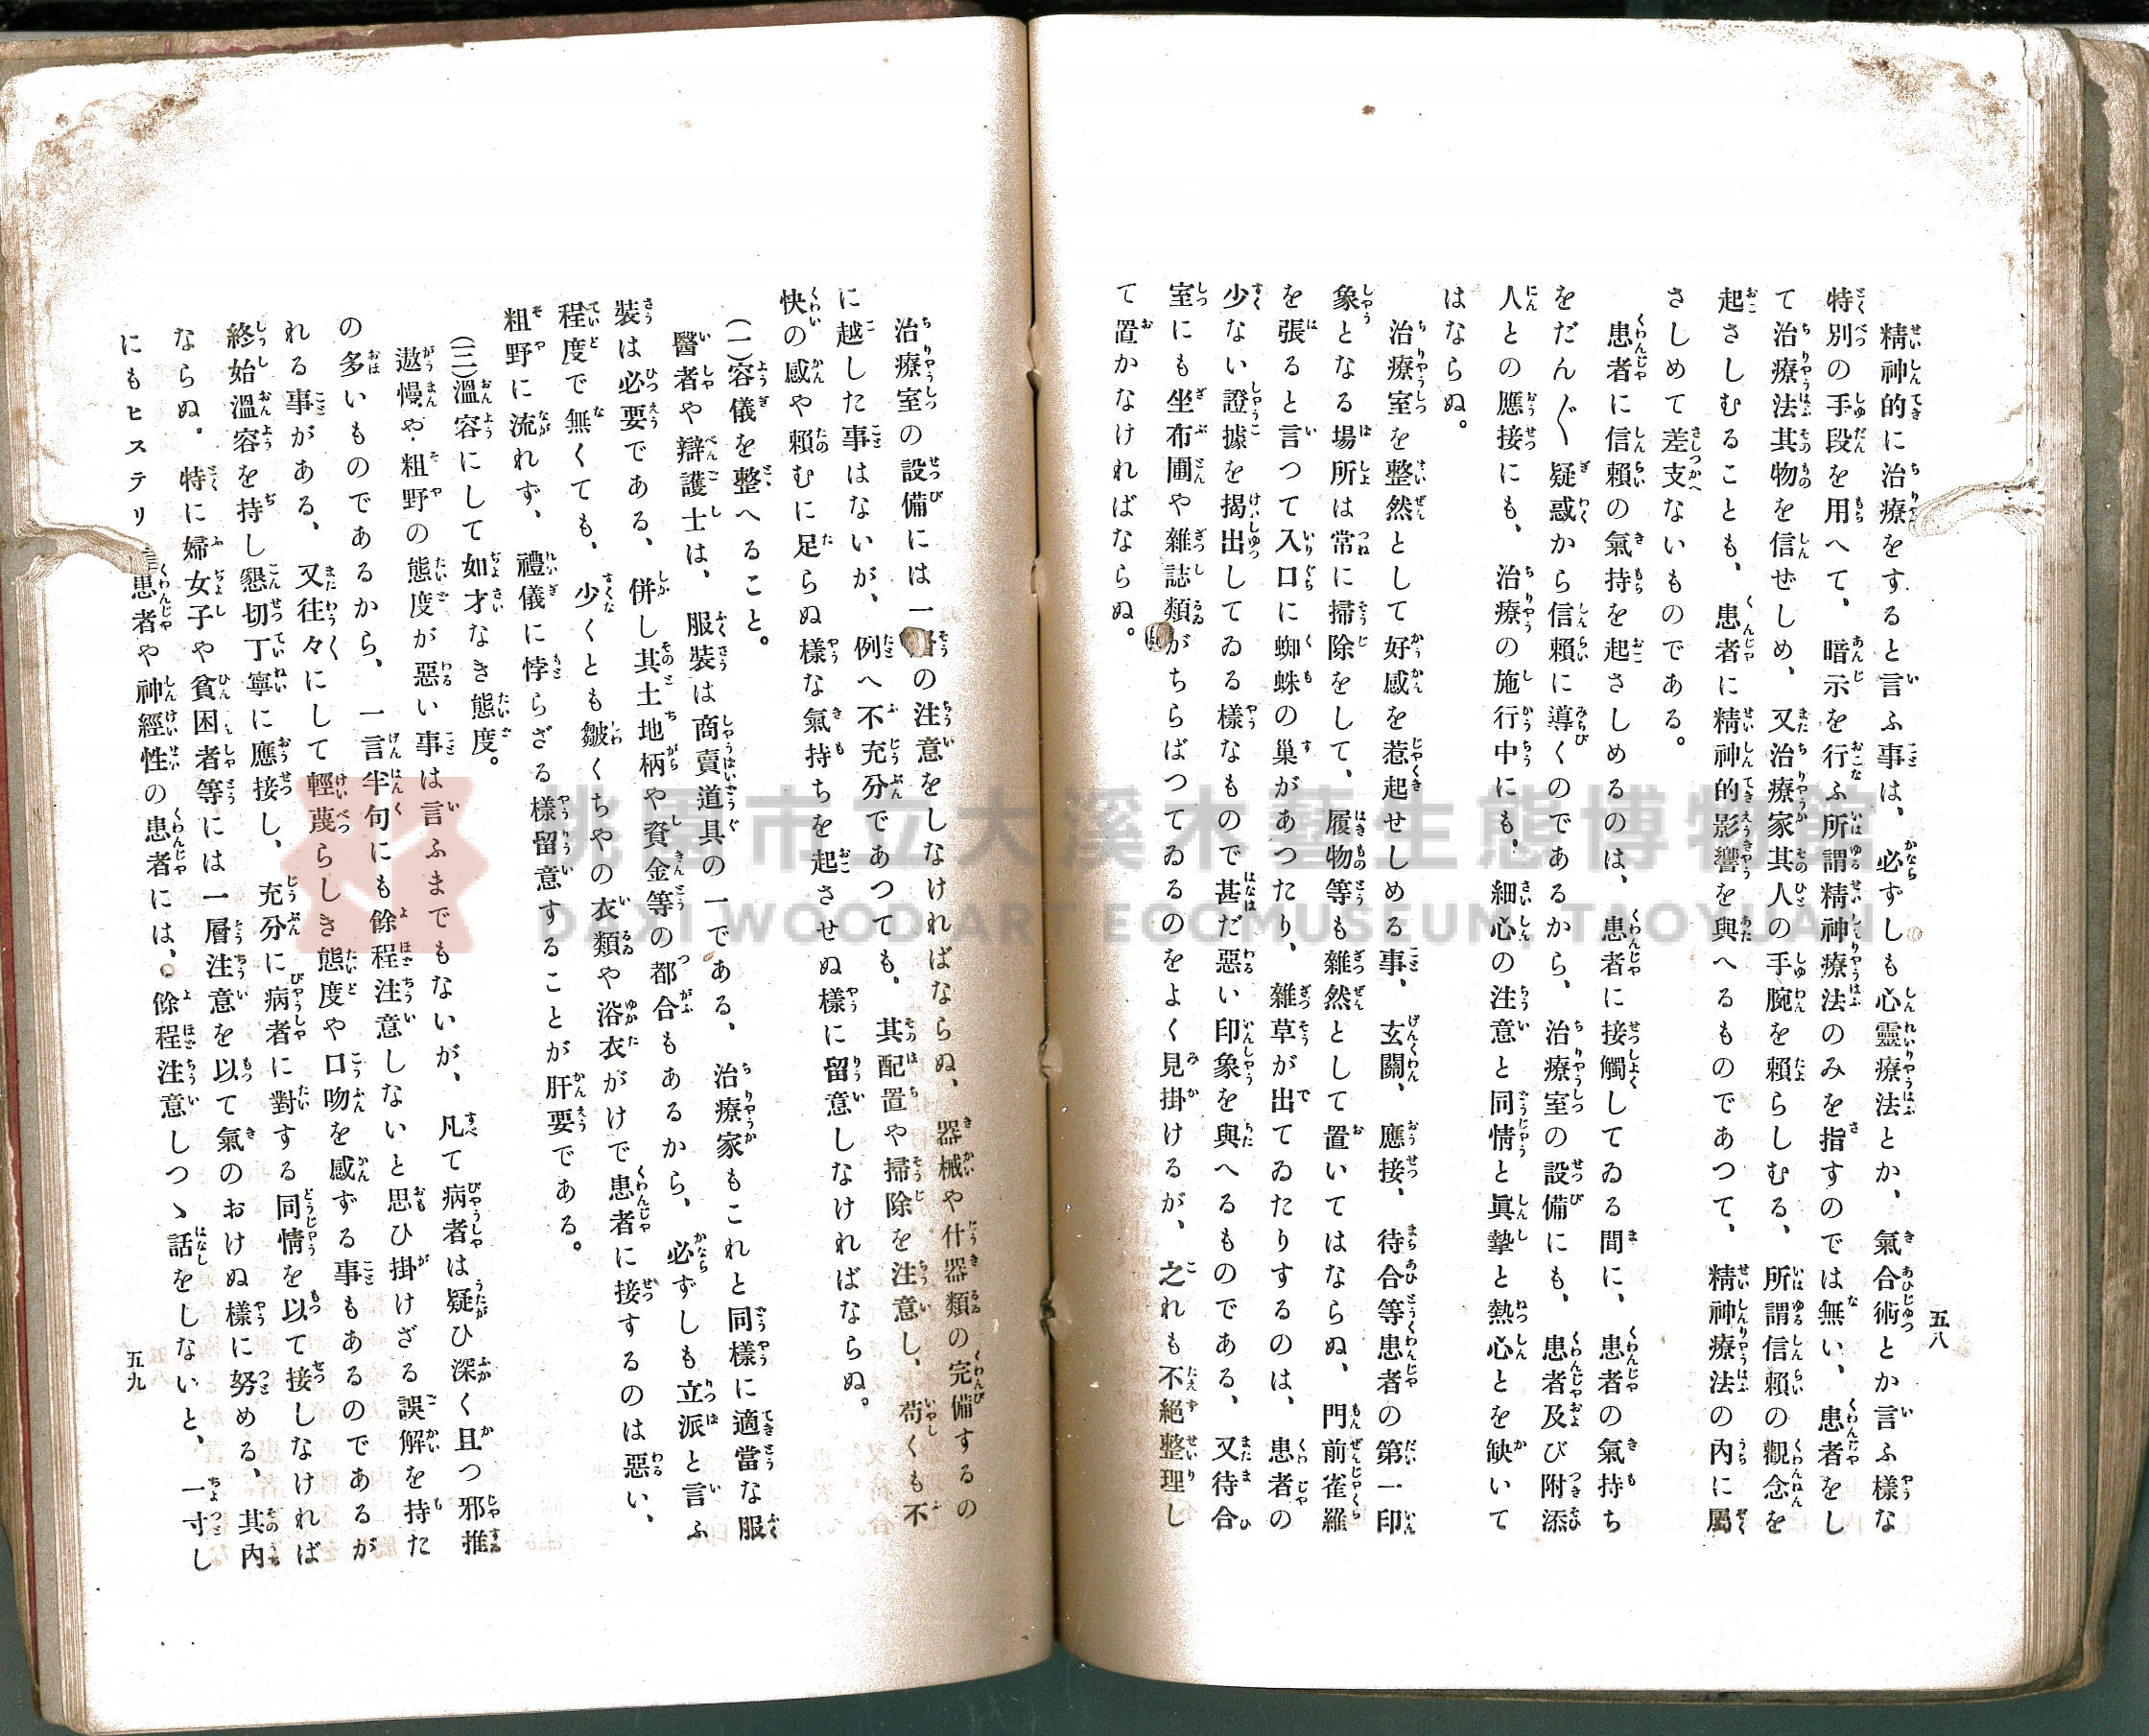 精神的に治療をすると言ふ事は、必ずしも心靈療法とか、氣合術とか言ふ樣な
特別の手段を用へて、暗示を行ふ所謂精神療法のみを指すのでは無い、患者をし
て治療法其物を信ぜしめ、又治療家其人の手腕を賴らしむる、所謂信賴の觀念を
起さしむることも、患者に精神的影響を與へるものであつて、精神療法の內に屬
さしめて差支ないものである。
患者に信賴の氣持を起さしめるのは、患者に接觸してゐる間に、患者の氣持ち
をだん〲疑惑から信賴に導くのであるから、治療室の設備にも、患者及び附添
人との應接にも、治療の施行中にも、細心の注意と同情と眞摯と熱心とを缺いて
はならぬ。
治療室を整然として好感を惹起せしめる事、玄關、應接、待合等患者の第一印
象となる場所は常に掃除をして、履物等も雜然として置いてはならぬ、門前雀羅
を張ると言つて入口に蜘蛛の巢があつたり、雜草が出てゐたりするのは、患者の
少ない證據を揭出してゐる樣なもので甚だ惡い印象を與へるものである、又待合
室にも坐布團や雜誌類がちらばつてゐるのをよく見掛けるが、之れも不絕整理し
て置かなければならぬ。
五八
治療室の設備には一層の注意をしなければならぬ、器械や什器類の完備するの
に越した事はないが、例へ不充分であつても、其配置や掃除を注意し、苟くも不
快の感や賴むに足らぬ樣な氣持ちを起させぬ樣に留意しなければならぬ。
(一)容儀を整へること。
醫者や辯護士は、服裝は商賣道具の一である、治療家もこれと同樣に適當な服
裝は必要である、併し其土地柄や資金等の都合もあるから、必ずしも立派と言ふ
程度で無くても、少くとも皺くちやの衣類や浴衣がけで患者に接するのは惡い、
粗野に流れず、禮儀に悖らざる樣留意することが肝要である。
(二)溫容にして如才なき態度。
遨慢や粗野の態度が惡い事は言ふまでもないが、凡て病者は疑ひ深く且つ邪推
の多いものであるから、一言半句にも餘程注意しないと思ひ掛けざる誤解を持た
れる事がある、又往々にして輕蔑らしき態度や口吻を感ずる事もあるのであるが
終始溫容を持し懇切丁寧に應接し、充分に病者に對する同情を以て接しなければ
ならぬ。特に婦女子や貧困者等には一層注意を以て氣のおけぬ樣に努める、其內
にもヒステリー患者や神經性の患者には、餘程注意しつゝ話をしないと、一寸し
五九
桃園市立大溪木藝生態博物館
DAXI WOOD ART ECOMUSEUM, TAOYUAN